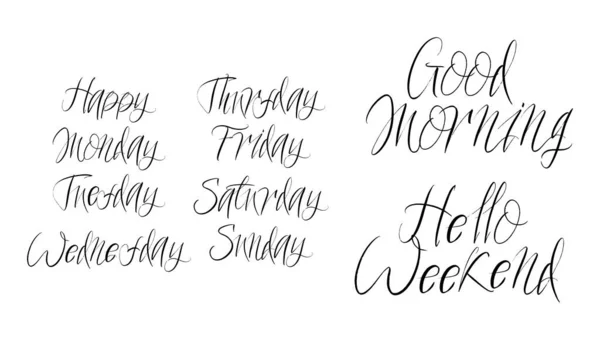 Happy
Monday
Tuesday
Wednesday
Thursday
Friday
Saturday
Sunday
Good
Morning
Hello
Weekend